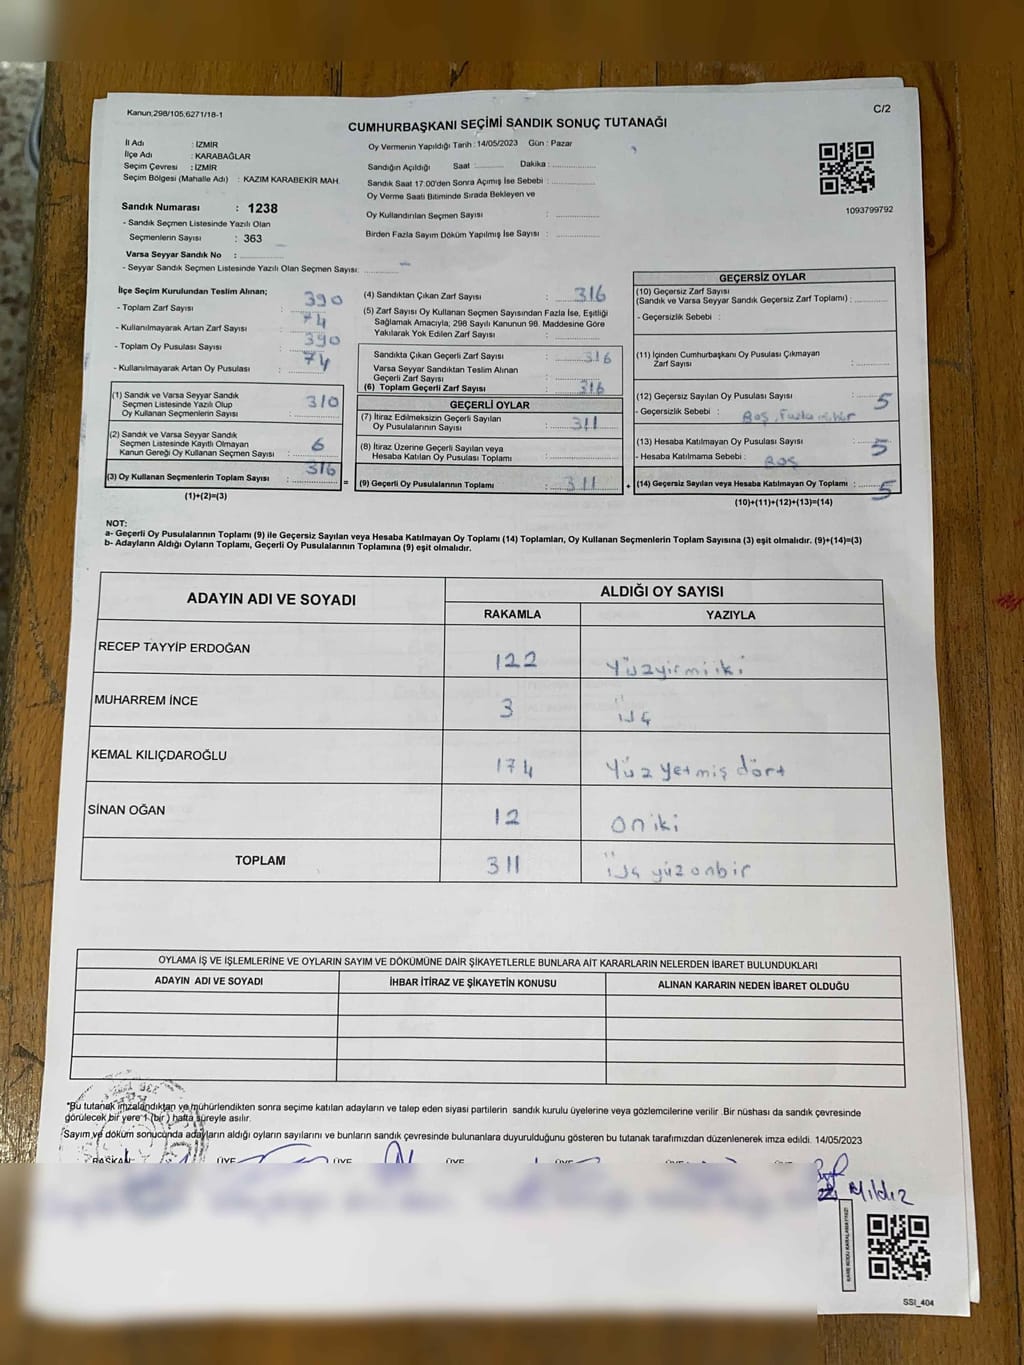 Kanun;298/105;6271/18-1
C/2
CUMHURBAŞKANI SEÇİMİ SANDIK SONUÇ TUTANAĞI
İl Adı : İZMİR
İlçe Adı : KARABAĞLAR
Seçim Çevresi : İZMİR
Seçim Bölgesi (Mahalle Adı) : KAZIM KARABEKİR MAH.
Sandık Numarası : 1238
- Sandık Seçmen Listesinde Yazılı Olan
Seçmenlerin Sayısı : 363
Varsa Seyyar Sandık No :
- Seyyar Sandık Seçmen Listesinde Yazılı Olan Seçmen Sayısı:
Oy Vermenin Yapıldığı Tarih : 14/05/2023 Gün : Pazar
Sandığın Açıldığı Saat : Dakika :
Sandık Saat 17:00'den Sonra Açımış İse Sebebi :
Oy Verme Saati Bitiminde Sırada Bekleyen ve
Oy Kullandırılan Seçmen Sayısı :
Birden Fazla Sayım Döküm Yapılmış İse Sayısı :
1093799792
İlçe Seçim Kurulundan Teslim Alınan;
- Toplam Zarf Sayısı : 390
- Kullanılmayarak Artan Zarf Sayısı : 74
- Toplam Oy Pusulası Sayısı : 390
- Kullanılmayarak Artan Oy Pusulası : 74
(1) Sandık ve Varsa Seyyar Sandık
Seçmen Listesinde Yazılı Olup
Oy Kullanan Seçmenlerin Sayısı : 310
(2) Sandık ve Varsa Seyyar Sandık
Seçmen Listesinde Kayıtlı Olmayan
Kanun Gereği Oy Kullanan Seçmen Sayısı : 6
(3) Oy Kullanan Seçmenlerin Toplam Sayısı : 316
(1)+(2)=(3)
(4) Sandıktan Çıkan Zarf Sayısı : 316
(5) Zarf Sayısı Oy Kullanan Seçmen Sayısından Fazla İse, Eşitliği
Sağlamak Amacıyla, 298 Sayılı Kanunun 98. Maddesine Göre
Yakılarak Yok Edilen Zarf Sayısı :
Sandıkta Çıkan Geçerli Zarf Sayısı : 316
Varsa Seyyar Sandıktan Teslim Alınan
Geçerli Zarf Sayısı :
(6) Toplam Geçerli Zarf Sayısı : 316
GEÇERLİ OYLAR
(7) İtiraz Edilmeksizin Geçerli Sayılan
Oy Pusulalarının Sayısı : 311
(8) İtiraz Üzerine Geçerli Sayılan veya
Hesaba Katılan Oy Pusulası Toplamı :
= (9) Geçerli Oy Pusulalarının Toplamı : 311 +
GEÇERSİZ OYLAR
(10) Geçersiz Zarf Sayısı
(Sandık ve Varsa Seyyar Sandık Geçersiz Zarf Toplamı) :
- Geçersizlik Sebebi :
(11) İçinden Cumhurbaşkanı Oy Pusulası Çıkmayan
Zarf Sayısı :
(12) Geçersiz Sayılan Oy Pusulası Sayısı : 5
- Geçersizlik Sebebi : Boş, Fazla mühür
(13) Hesaba Katılmayan Oy Pusulası Sayısı : 5
- Hesaba Katılmama Sebebi : Boş
(14) Geçersiz Sayılan veya Hesaba Katılmayan Oy Toplamı : 5
(10)+(11)+(12)+(13)=(14)
NOT:
a- Geçerli Oy Pusulalarının Toplamı (9) ile Geçersiz Sayılan veya Hesaba Katılmayan Oy Toplamı (14) Toplamları, Oy Kullanan Seçmenlerin Toplam Sayısına (3) eşit olmalıdır. (9)+(14)=(3)
b- Adayların Aldığı Oyların Toplamı, Geçerli Oy Pusulalarının Toplamına (9) eşit olmalıdır.
ADAYIN ADI VE SOYADI
ALDIĞI OY SAYISI
RAKAMLA YAZIYLA
RECEP TAYYİP ERDOĞAN 122 Yüzyirmiiki
MUHARREM İNCE 3 üç
KEMAL KILIÇDAROĞLU 174 Yüz yetmiş dört
SİNAN OĞAN 12 on iki
TOPLAM 311 üç yüz onbir
OYLAMA İŞ VE İŞLEMLERİNE VE OYLARIN SAYIM VE DÖKÜMÜNE DAİR ŞİKAYETLERLE BUNLARA AİT KARARLARIN NELERDEN İBARET BULUNDUKLARI
ADAYIN ADI VE SOYADI İHBAR İTİRAZ VE ŞİKAYETİN KONUSU ALINAN KARARIN NEDEN İBARET OLDUĞU
*Bu tutanak imzalandıktan ve mühürlendikten sonra seçime katılan adayların ve talep eden siyasi partilerin sandık kurulu üyelerine veya gözlemcilerine verilir .Bir nüshası da sandık çevresinde
görülecek bir yere 1 (bir ) hafta süreyle asılır.
Sayım ve döküm sonucunda adayların aldığı oyların sayılarını ve bunların sandık çevresinde bulunanlara duyurulduğunu gösteren bu tutanak tarafımızdan düzenlenerek imza edildi. 14/05/2023
BAŞKAN ÜYE ÜYE ÜYE ÜYE ÜYE ÜYE
Yıldız
SSI_404